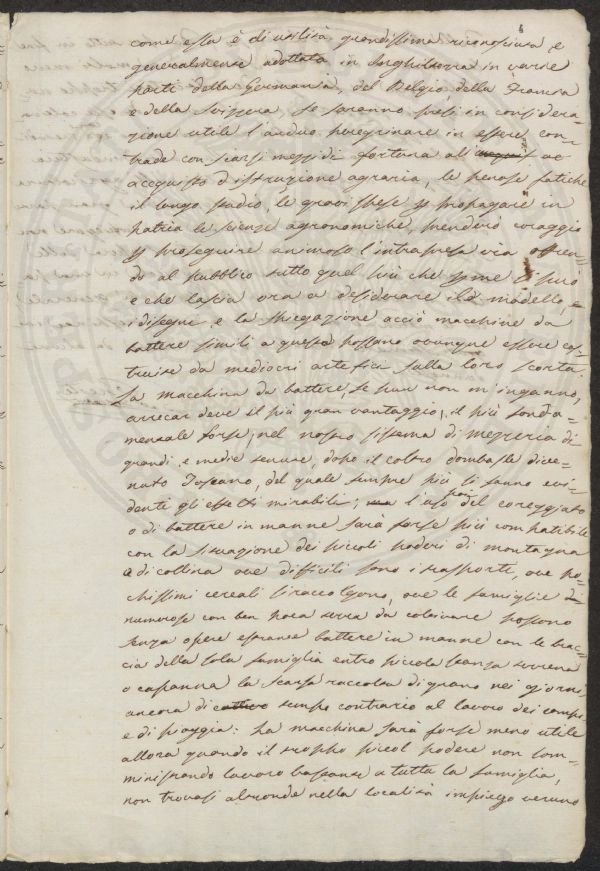 come essa è di utilità grandissima riconosciuta, e
generalmente adottata in Inghilterra in varie
parti della Germania, del Belgio della Francia
e della Svizzera, se saranno presi in considera-
zione utile l'arduo peregrinare in estere con-
trade con scarsi mezzi di fortuna all' ad
acquisto d'istruzione agraria, le penose fatiche
il lungo studio, le gravi spese p propagare in
patria le scienze agronomiche, prenderò coraggio
p proseguire animoso l'intrapresa via offren-
do al pubblico tutto quel più che
e che lascia ora a desiderare il modello, e
i disegni, e la spiegazione acciò macchine da
battere simili a questa possano ovunque essere cos-
truite da mediocri artefici sulla loro scorta.
La macchina da battere, se pur non m'inganno,
arrecar deve il più gran vantaggio, il più fonda-
mentale forse, nel nostro sistema di mezzeria di
grandi e medie tenute, dopo il coltro Dombasle dive-
nuto Toscano, del quale sempre più si fanno evi-
denti gli effetti mirabili; ma l'uso del coreggiato
o di battere in manne sarà forse più compatibile
con la situazione dei piccoli poderi di montagna
e di collina ove difficili sono i trasporti, ove po-
chissimi cereali si raccolgono, ove le famiglie
numerose con ben poca terra da coltivare possono
senza opere estranee battere in manne con le brac-
cia della sola famiglia entro piccola stanza terrena
o capanna la scarsa raccolta di grano nei giorni,
ancora di cattivo tempo contrario al lavoro dei campi
e di pioggia: La macchina sarà forse meno utile
allora quando il troppo piccol podere non som-
ministrando lavoro bastante a tutta la famiglia,
non trovasi altronde nella località impiego veruno